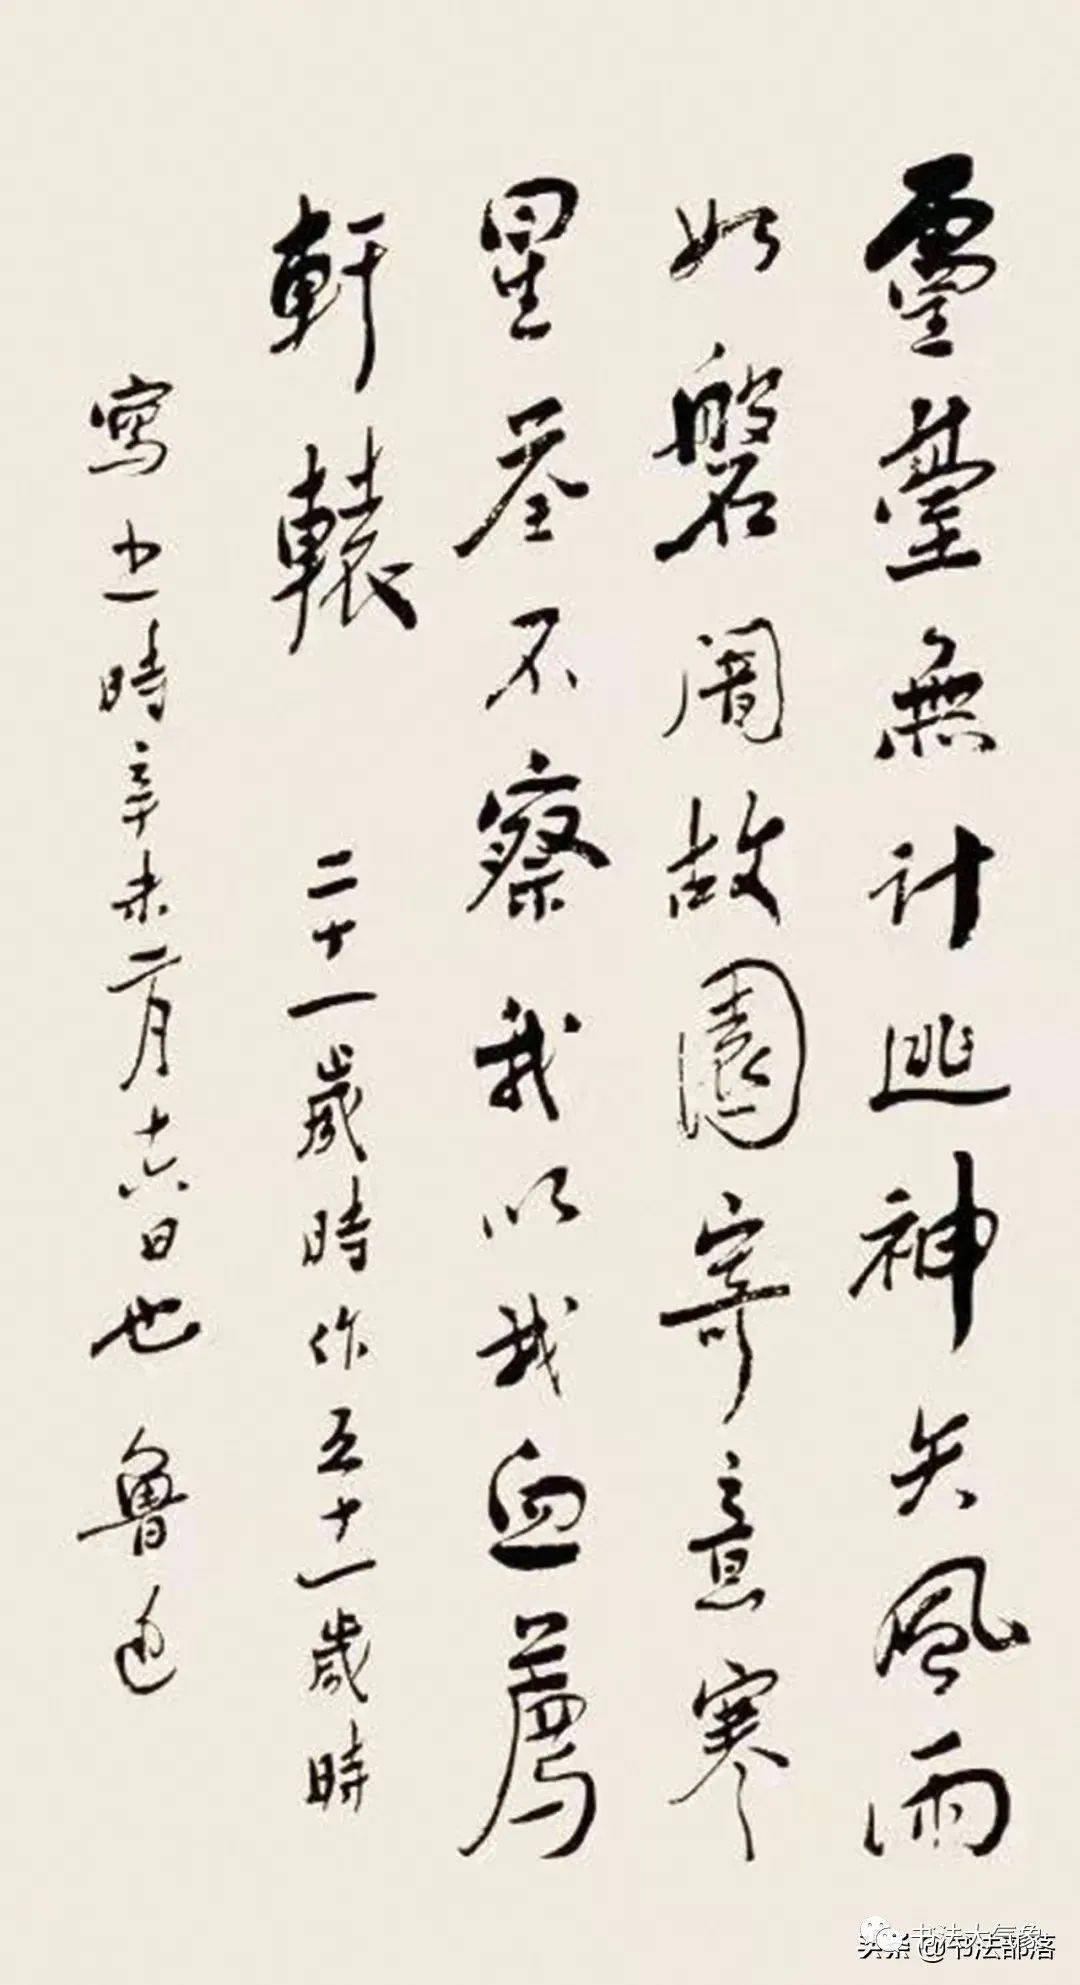 靈臺無計逃神矢風雨
如磐闇故園寄意寒
星荃不察我以我血薦
軒轅
二十一歲時作五十一歲時
寫之時辛未二月十六日也 魯迅
头条 @书法部落
书法大气象